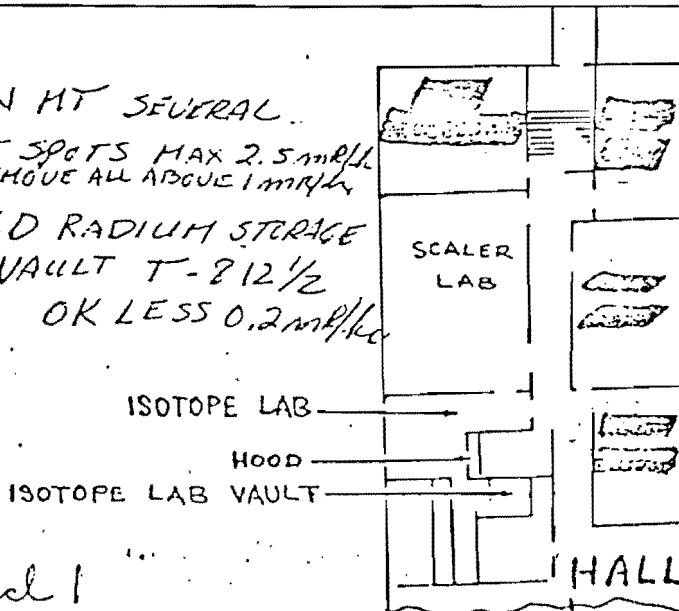 N MT SEVERAL
T SPOTS MAX 2.5 mR/hr
MOVE ALL ABOVE 1 mR/hr
D RADIUM STORAGE
VAULT T-812 1/2
OK LESS 0.2 mR/hr
SCALER
LAB
ISOTOPE LAB
HOOD
ISOTOPE LAB VAULT
HALL
d 1